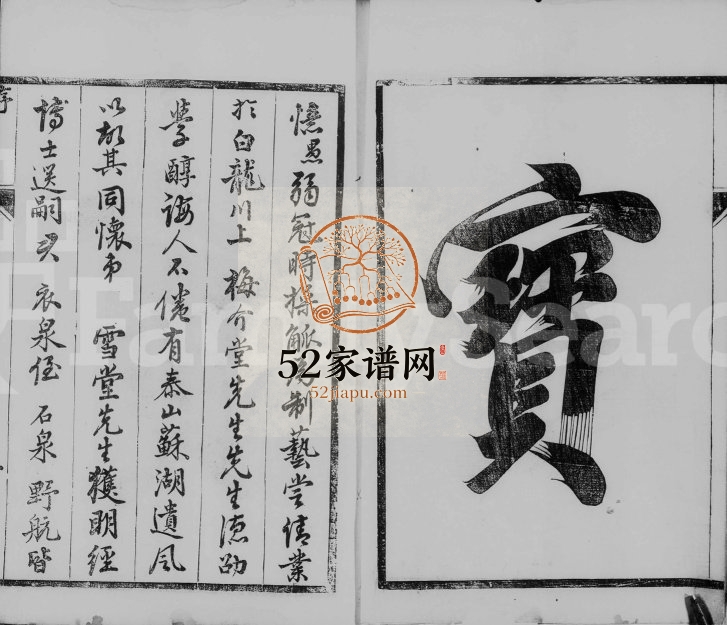 寶
憶愚弱冠時操觚為制藝嘗請業
於白龍川上 梅介堂先生先生德劭
學醇誨人不倦有泰山蘇湖遺風
以故其同懷弟 雪堂先生獲明經
博士選嗣君 衣泉侄 石泉 野航皆
序
52家谱网
52jiapu.com
FamilySearch